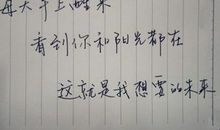 每天早上醒来
看到你和阳光都在
这就是我想要的未来